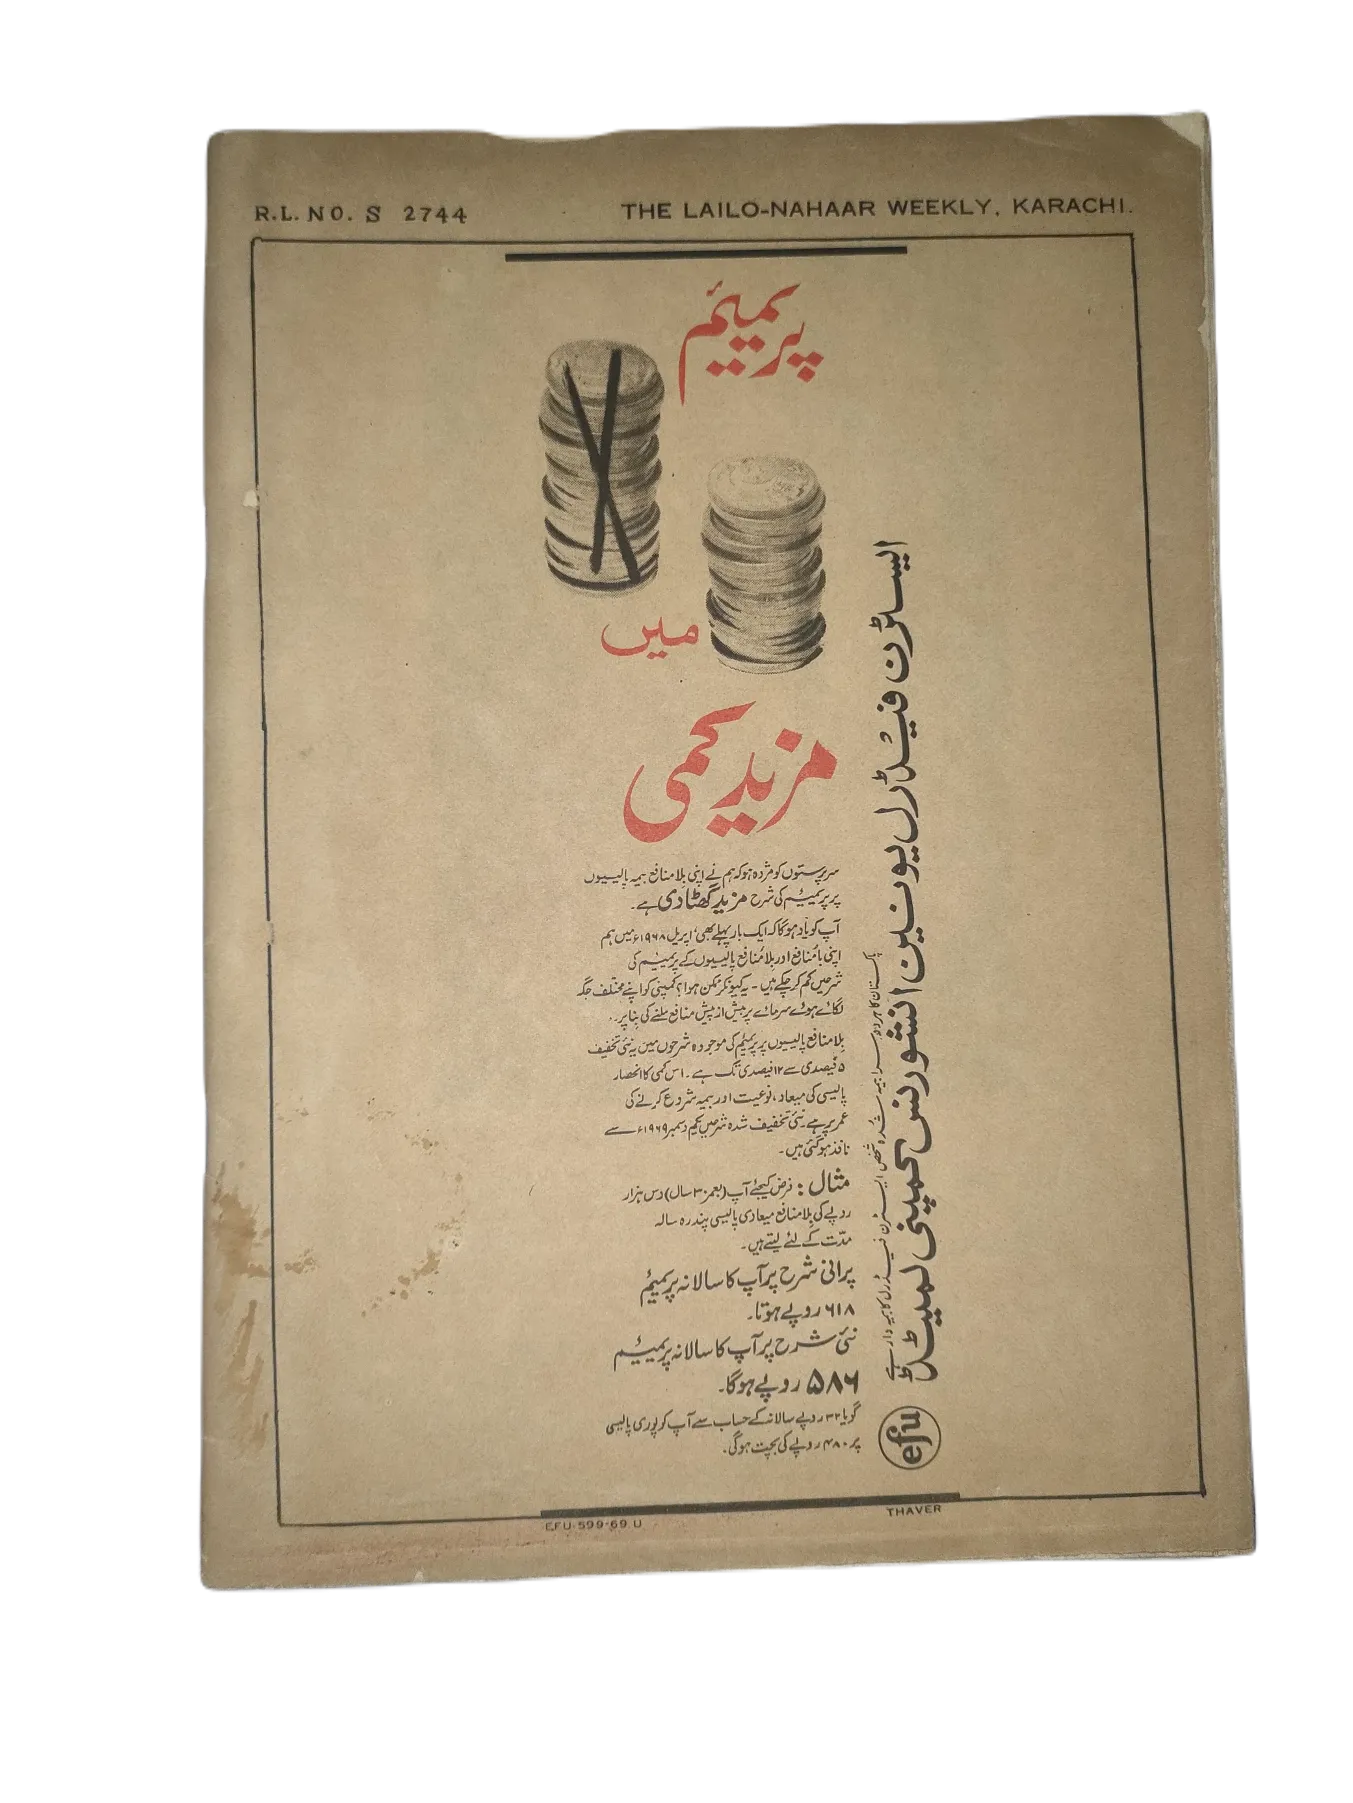 R.L. NO. S 2744
THE LAILO-NAHAAR WEEKLY, KARACHI.
پریمیئم
میں
مزید کمی
سرپرستوں کو مژدہ ہو کہ ہم نے اپنی بلا منافع بیمہ پالیسیوں
پر پریمیئم کی شرح مزید گھٹا دی ہے۔
آپ کو یاد ہو گا کہ ایک بار پہلے بھی، اپریل ۱۹۶۸ء میں ہم
اپنی با منافع اور بلا منافع پالیسیوں کے پریمیئم کی
شرحیں کم کر چکے ہیں۔ یہ کیونکر ممکن ہوا؟ کمپنی کو اپنے مختلف جگہ
لگائے ہوئے سرمائے پر بیش از بیش منافع ملنے کی بنا پر..
بلا منافع پالیسیوں پر پریمیئم کی موجودہ شرحوں میں یہ نئی تخفیف
۵ فیصدی سے ۱۲ فیصدی تک ہے۔ اس کمی کا انحصار
پالیسی کی میعاد، نوعیت اور بیمہ شروع کرنے کی
عمر پر ہے۔ نئی تخفیف شدہ شرحیں یکم دسمبر ۱۹۶۹ء سے
نافذ ہو گئی ہیں۔
مثال: فرض کیجئے آپ (بعمر ۳۰ سال) دس ہزار
روپے کی بلا منافع میعادی پالیسی پندرہ سالہ
مدّت کے لئے لیتے ہیں۔
پرانی شرح پر آپ کا سالانہ پریمیئم
۶۱۸ روپے ہوتا۔
نئی شرح پر آپ کا سالانہ پریمیئم
۵۸۶ روپے ہو گا۔
گویا ۳۲ روپے سالانہ کے حساب سے آپ کو پوری پالیسی
پر ۴۸۰ روپے کی بچت ہو گی۔
پاکستان کا ہر دوسرا بیمہ شدہ شخص ایسٹرن فیڈرل کا بیمہ دار ہے
ایسٹرن فیڈرل یونین انشورنس کمپنی لمیٹڈ
efu
EFU-599-69 U
THAVER